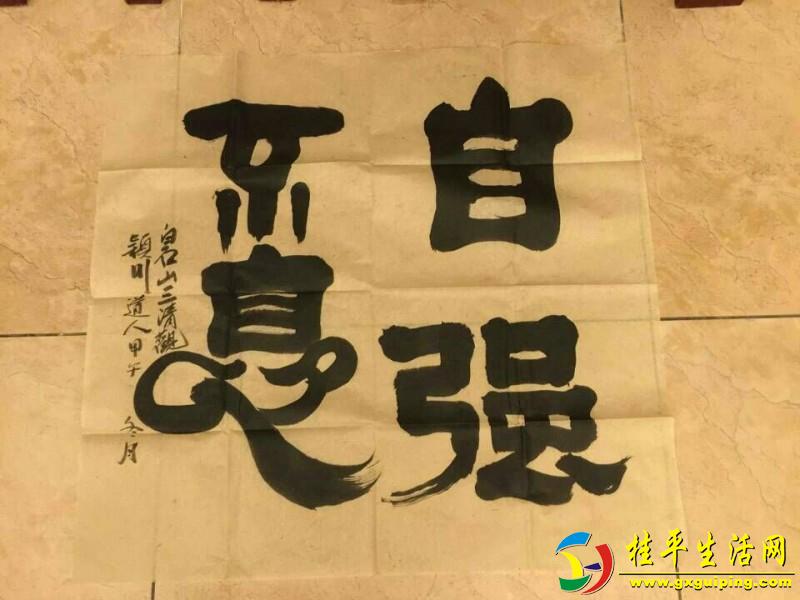 自强
不息
白石山三清觀
穎川道人甲午冬月
桂平生活网
www.gxguiping.com